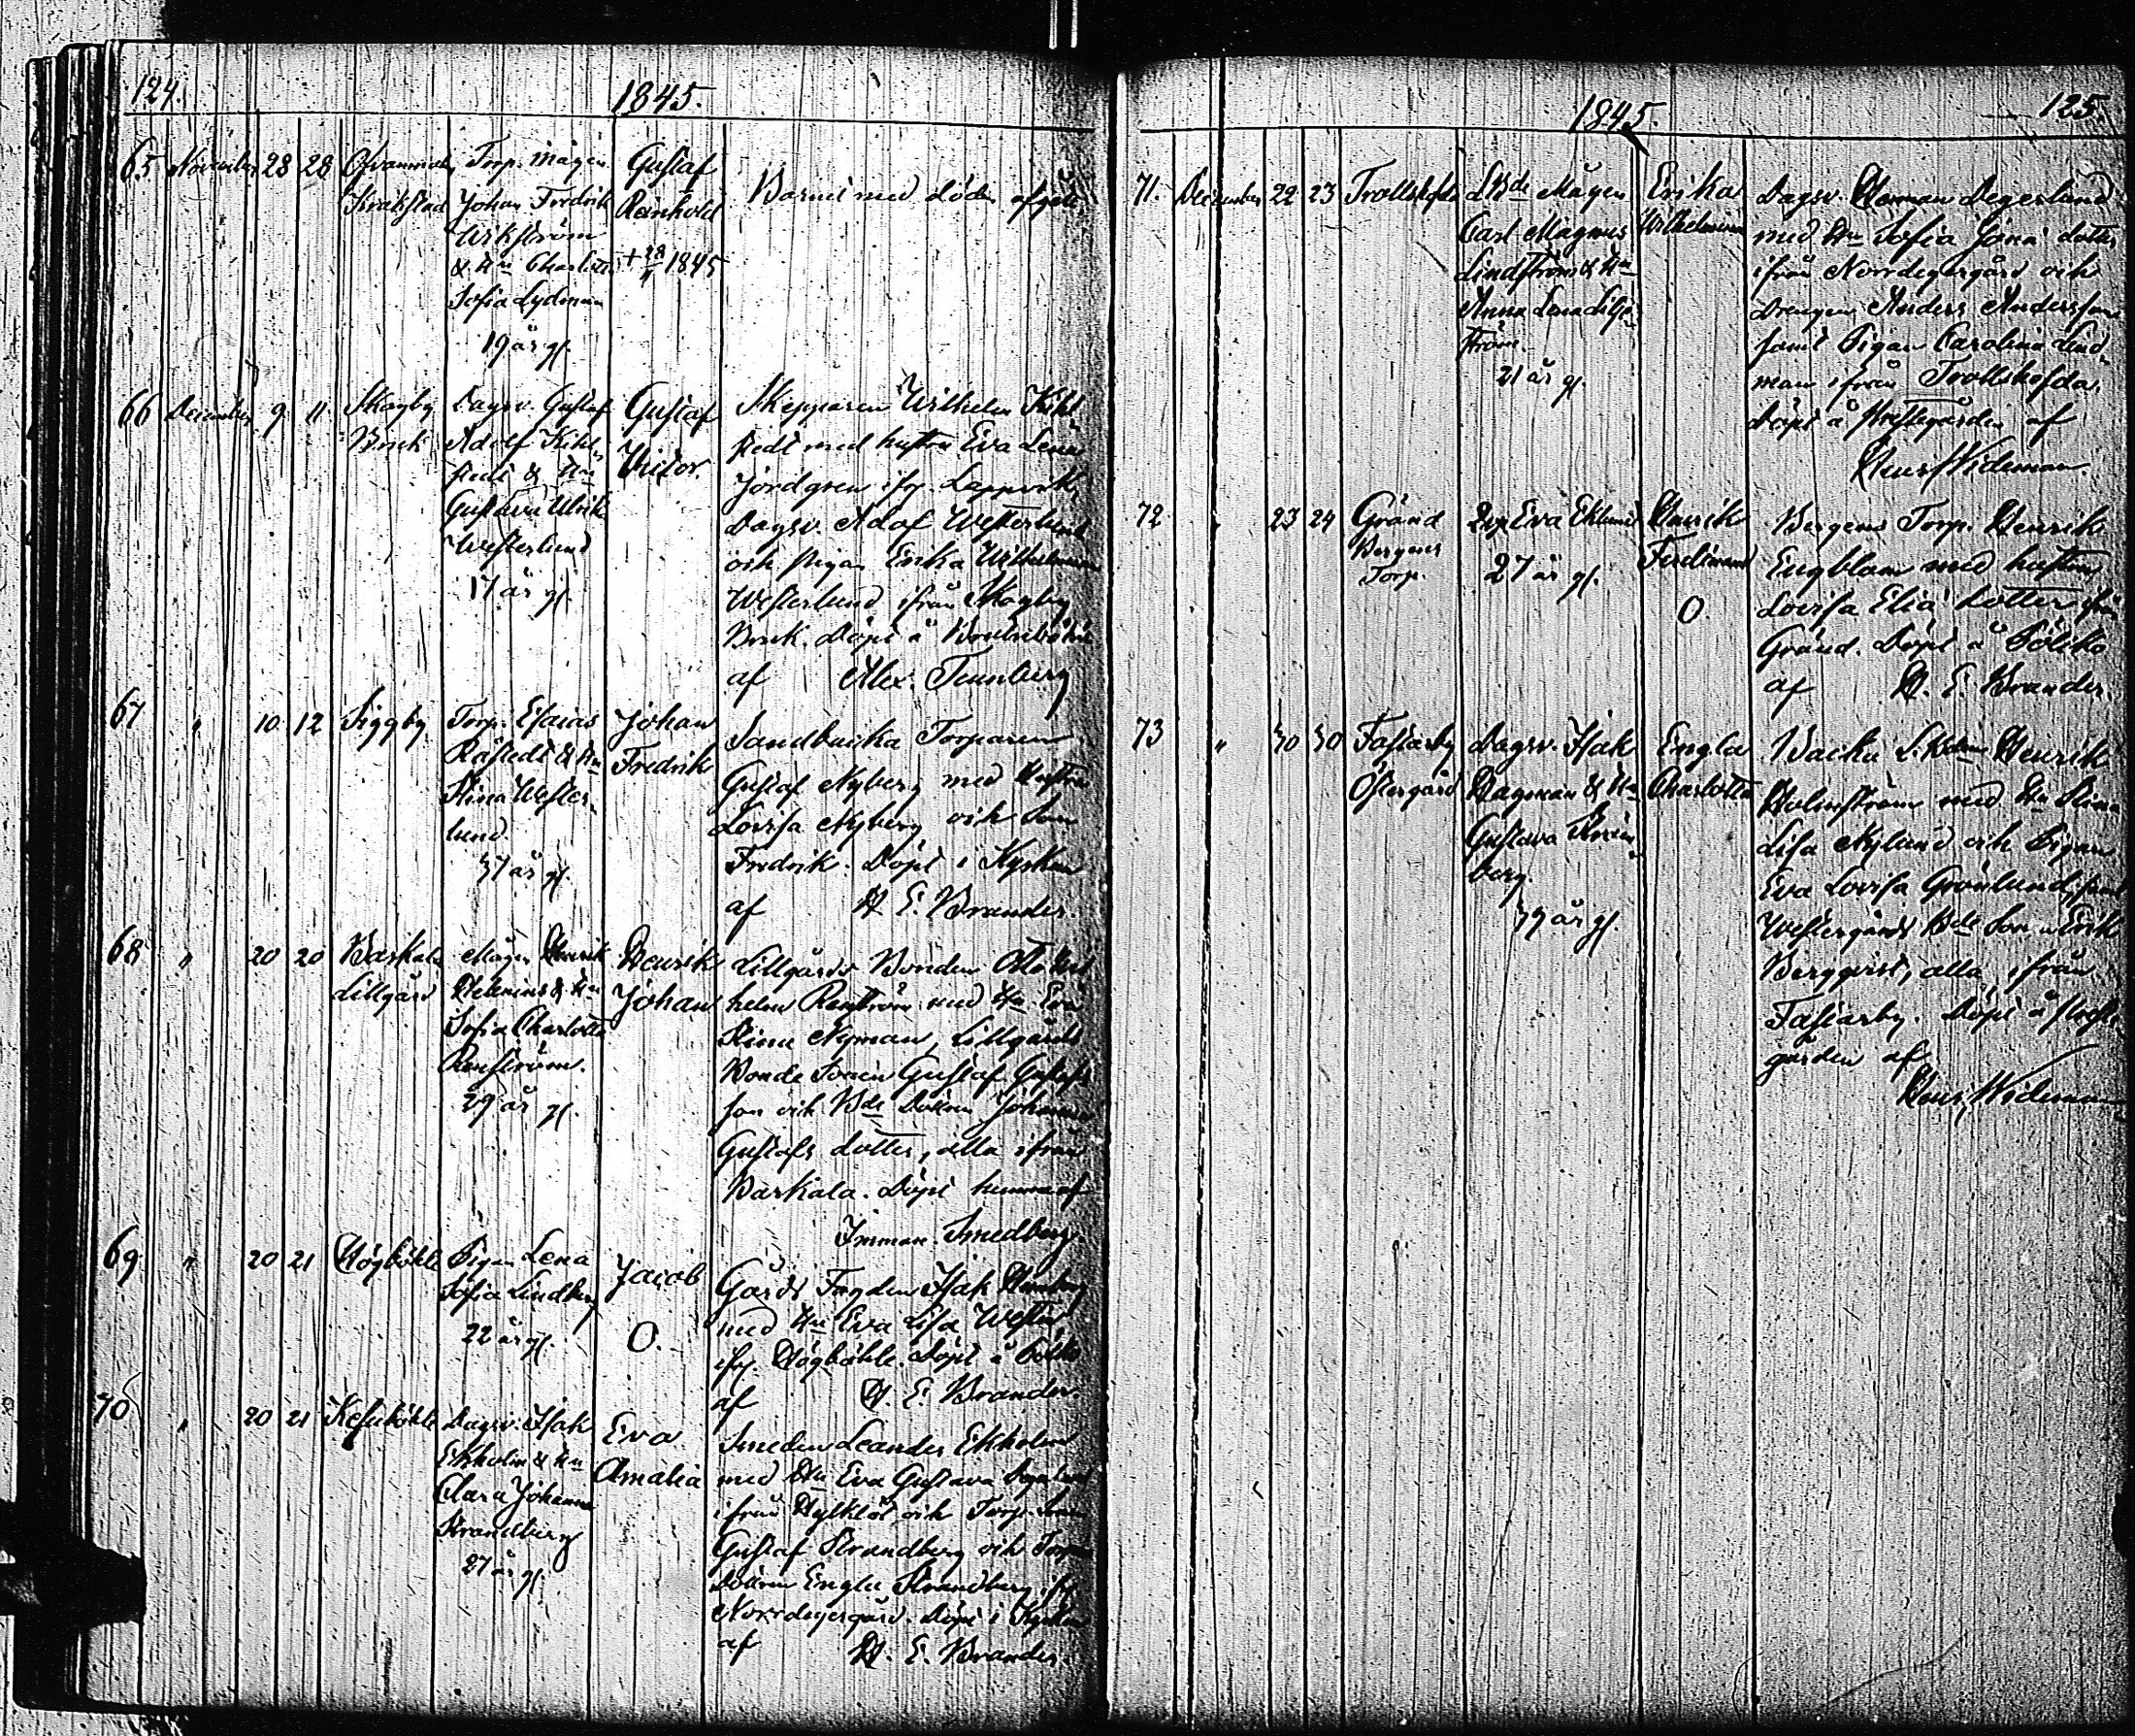 124.
1845.
65 November 28 28
Krakstad
Torp. Mågen
Johan Fredrik
Wikström
& Hu Charlotta
Sofia Lydman
19 år gl.
Gustaf
Reinhold
+ 28/11 1845
Barnet med döden afgått
66 December 9 11
Skogby
Bruk
Dagsv. Gustaf
Adolf Kihl-
stedt & Hu
Gustava Ulrika
Westerlund
17 år gl.
Gustaf
Victor.
Skepparen Wilhelm Kihl
stedt med hustru Eva Lena
Jordgren ifr. Lappvik,
Dagsv. Adolf Westerlund
och pigan Erika Wilhelmina
Westerlund ifrån Skogby
Bruk. Döpt å
af Alex. Tennberg
67 " 10 12
Siggby
Torp. Esaias
Råstedt & Hu
Stina Wester-
lund
37 år gl.
Johan
Fredrik
Sandbacka Torparen
Gustaf Nyberg med Hustru
Lovisa Nyberg och Son
Fredrik. Döpt i Kyrkan
af H. E. Brander.
68 " 20 20
Baskala
Lillgård
Mågen Henrik
Helenius & Hu
Sofia Charlotta
Renström.
29 år gl.
Henrik
Johan
Lillgårds Bonden Otto Wil
helm Renström med Hu Eva
Stina Nyman, Lillgårds
Bonde Sonen Gustaf Gustafs
son och Bde Dottren Johanna
Gustafs dotter, alla ifrån
Baskala. Döpt hemma af
Imman. Smedberg
69 " 20 21
Högböhle
Pigan Lena
Sofia Lindberg
22 år gl.
Jacob
O.
Gårds Fogden Isak
med Hu Eva Lisa
ifr. Högböhle. Döpt å
af H. E. Brander.
70 " 20 21
Dagsv. Isak
Ekholm & Hu
Clara Johanna
Strandberg
27 år gl.
Eva
Amalia
Smeden Leander Ekholm
med Hu Eva Gustava
ifrån och Torp. Son
Gustaf Strandberg och Torp
Dottren Engla Strandberg ifr.
Norrdegergård. Döpt i Kyrkan
af H. E. Brander.
1845.
125.
71. December 22 23
Trollshofda
LBde Mågen
Carl Magnus
Lindström & Hu
Anna Lena Lilje-
ström.
21 år gl.
Erika
Wilhelmina
Dagsv. Herman Degerlund
med Hu Sofia Jona dotter
ifrån Norrdegergård och
Drengen Anders Andersson
samt Pigan Carolina Lind-
man ifrån Trollshofda.
Döpt å Prestegården af
Henr. Wideman
72 " 23 24
Gränd
Bergens
Torp.
Eva Eklund
27 år gl.
Henrik
Ferdinand
O
Bergens Torp. Henrik
Engblom med hustru
Lovisa Elia dotter från
Gränd. Döpt å
af H. E. Brander.
73 " 30 30
Fastarby
Östergård
Dagsv. Isak
Hagman & Hu
Gustava Ström-
berg.
39 år gl.
Engla
Charlotta
Backa Henrik
Holmström med Hu Stina
Lisa Nylund och Pigan
Eva Lovisa Grönlund, samt
Westergårds Bde Son Erik
Bergqvist, alla ifrån
Fastarby. Döpt å Preste-
gården af
Henr. Wideman